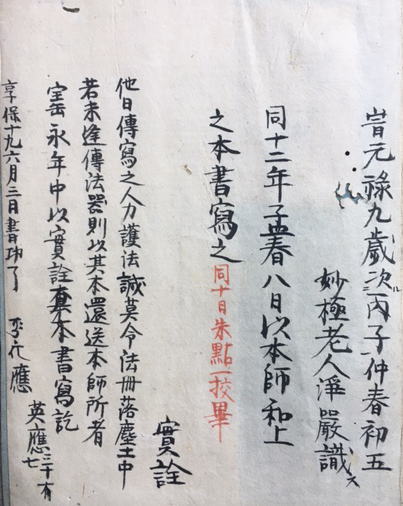 旹元祿九歲次丙子仲春初五
妙極老人淨嚴識
同十二年孟春八日以本師和上
之本書寫之同十日朱點一挍畢
實詮
他日傳寫之人力護法誠莫令法冊落塵土中
若未逢傳法器則以其本還送本師所者
寶永年中以實詮本書寫訖
享保十九六月三日書功了
英應三十有七